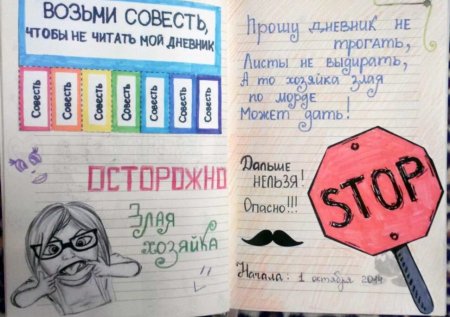 ВОЗЬМИ СОВЕСТЬ,
ЧТОБЫ НЕ ЧИТАТЬ МОЙ ДНЕВНИК
Совесть Совесть Совесть Совесть Совесть Совесть Совесть
ОСТОРОЖНО
Злая
хозяйка
Прошу дневник не
трогать,
Листы не выдирать,
А то хозяйка злая
по морде
Может дать!
Дальше
НЕЛЬЗЯ!
Опасно!!!
STOP
Начала: 1 октября 2014